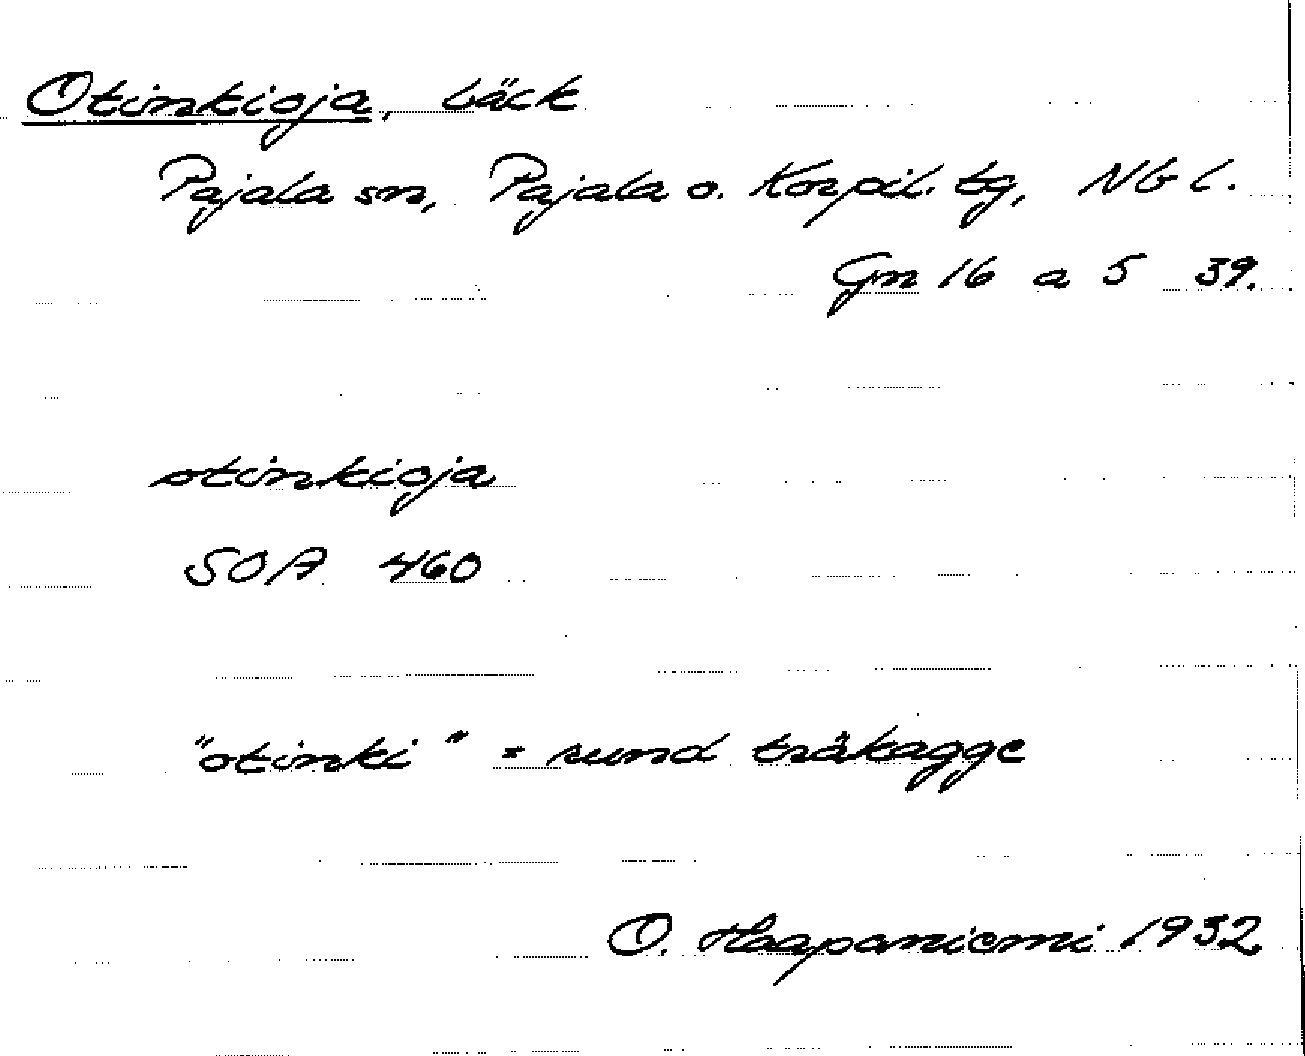 Otinkioja, bäck
Pajala sn, Pajala o. Korpil. tg, Nb l.
Gn 16 a 5 39.
otinkioja
SOA 460
"otinki" = rund träkagge
O. Haapaniemi 1932